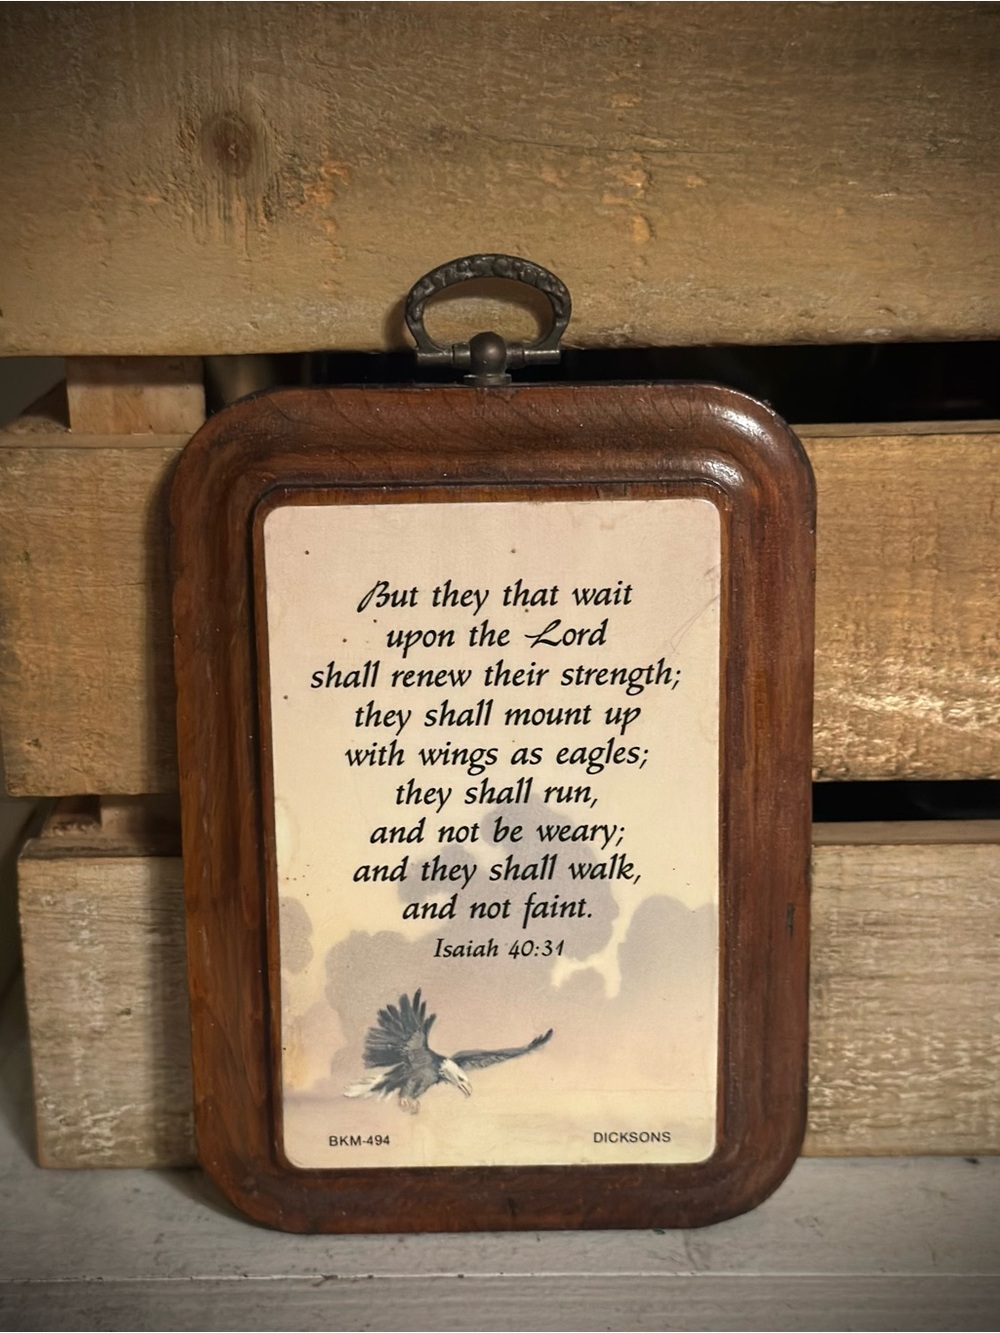 But they that wait
upon the Lord
shall renew their strength;
they shall mount up
with wings as eagles;
they shall run,
and not be weary;
and they shall walk,
and not faint.
Isaiah 40:31
BKM-494 DICKSONS